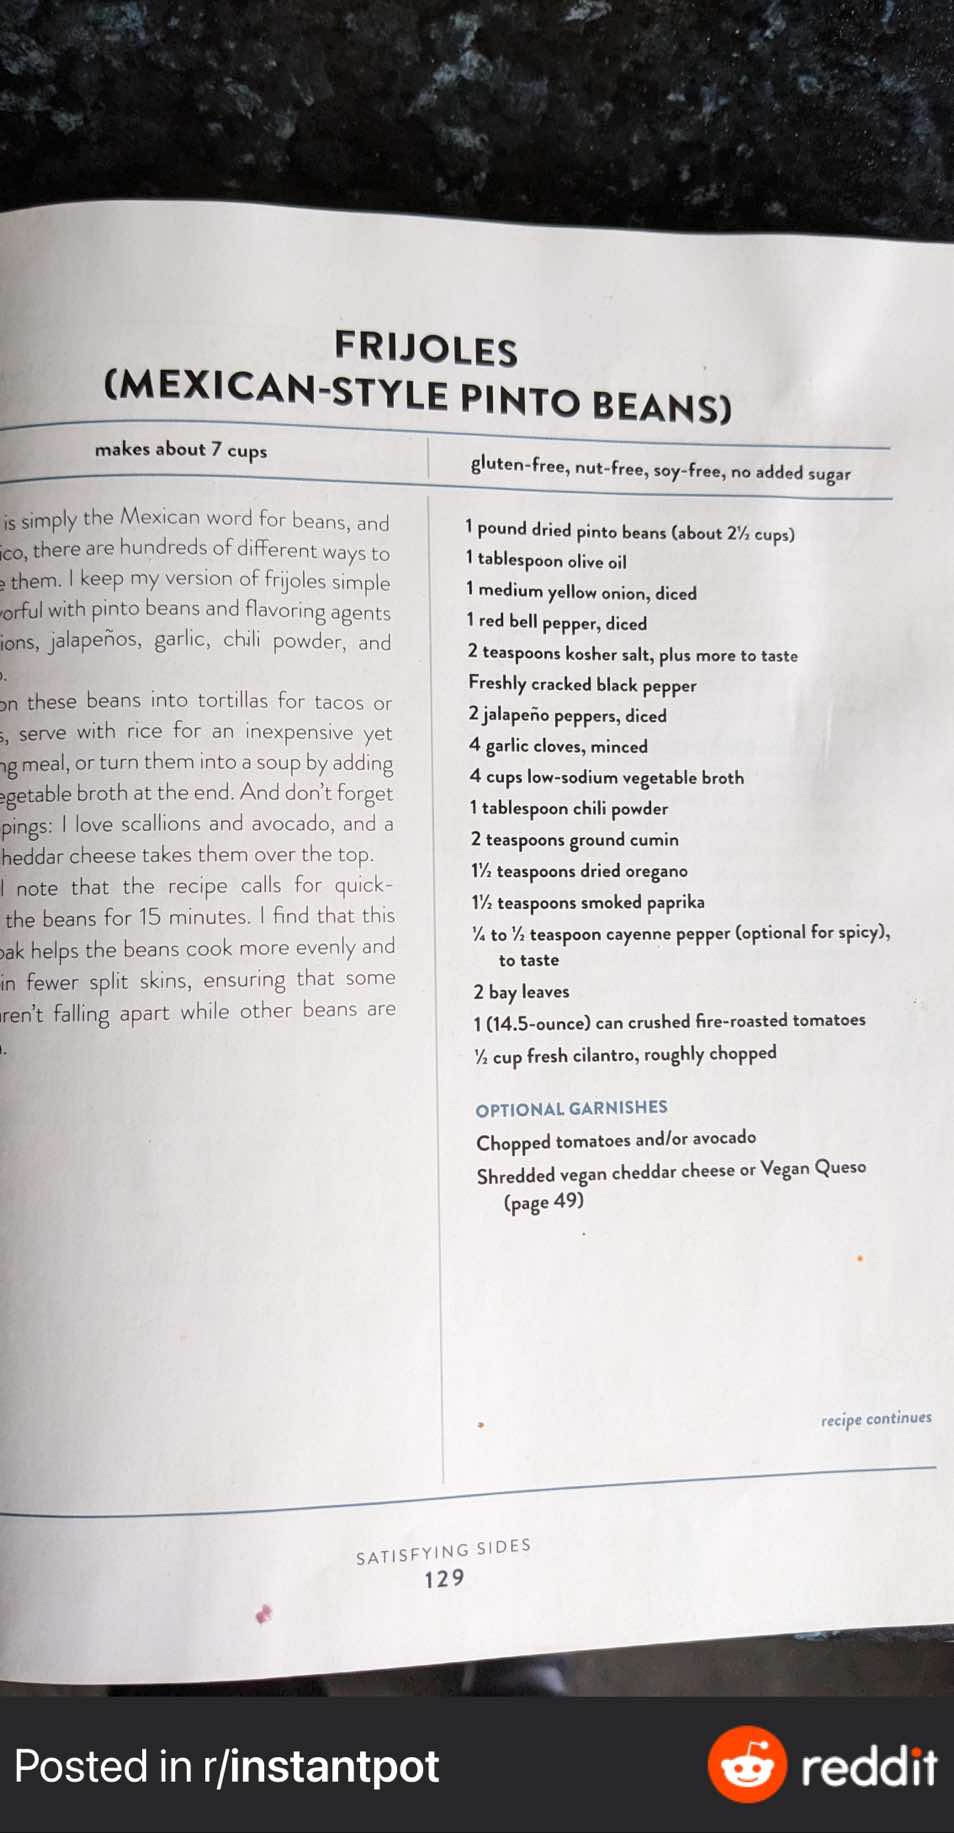 FRIJOLES
(MEXICAN-STYLE PINTO BEANS)
makes about 7 cups
gluten-free, nut-free, soy-free, no added sugar
is simply the Mexican word for beans, and
there are hundreds of different ways to
them. I keep my version of frijoles simple
with pinto beans and flavoring agents
jalapeños, garlic, chili powder, and
these beans into tortillas for tacos or
serve with rice for an inexpensive yet
meal, or turn them into a soup by adding
broth at the end. And don't forget
I love scallions and avocado, and a
cheese takes them over the top.
I note that the recipe calls for quick-
the beans for 15 minutes. I find that this
helps the beans cook more evenly and
in fewer split skins, ensuring that some
falling apart while other beans are
1 pound dried pinto beans (about 2½ cups)
1 tablespoon olive oil
1 medium yellow onion, diced
1 red bell pepper, diced
2 teaspoons kosher salt, plus more to taste
Freshly cracked black pepper
2 jalapeño peppers, diced
4 garlic cloves, minced
4 cups low-sodium vegetable broth
1 tablespoon chili powder
2 teaspoons ground cumin
1½ teaspoons dried oregano
1½ teaspoons smoked paprika
¼ to ½ teaspoon cayenne pepper (optional for spicy),
to taste
2 bay leaves
1 (14.5-ounce) can crushed fire-roasted tomatoes
½ cup fresh cilantro, roughly chopped
OPTIONAL GARNISHES
Chopped tomatoes and/or avocado
Shredded vegan cheddar cheese or Vegan Queso
(page 49)
recipe continues
SATISFYING SIDES
129
Posted in r/instantpot
reddit